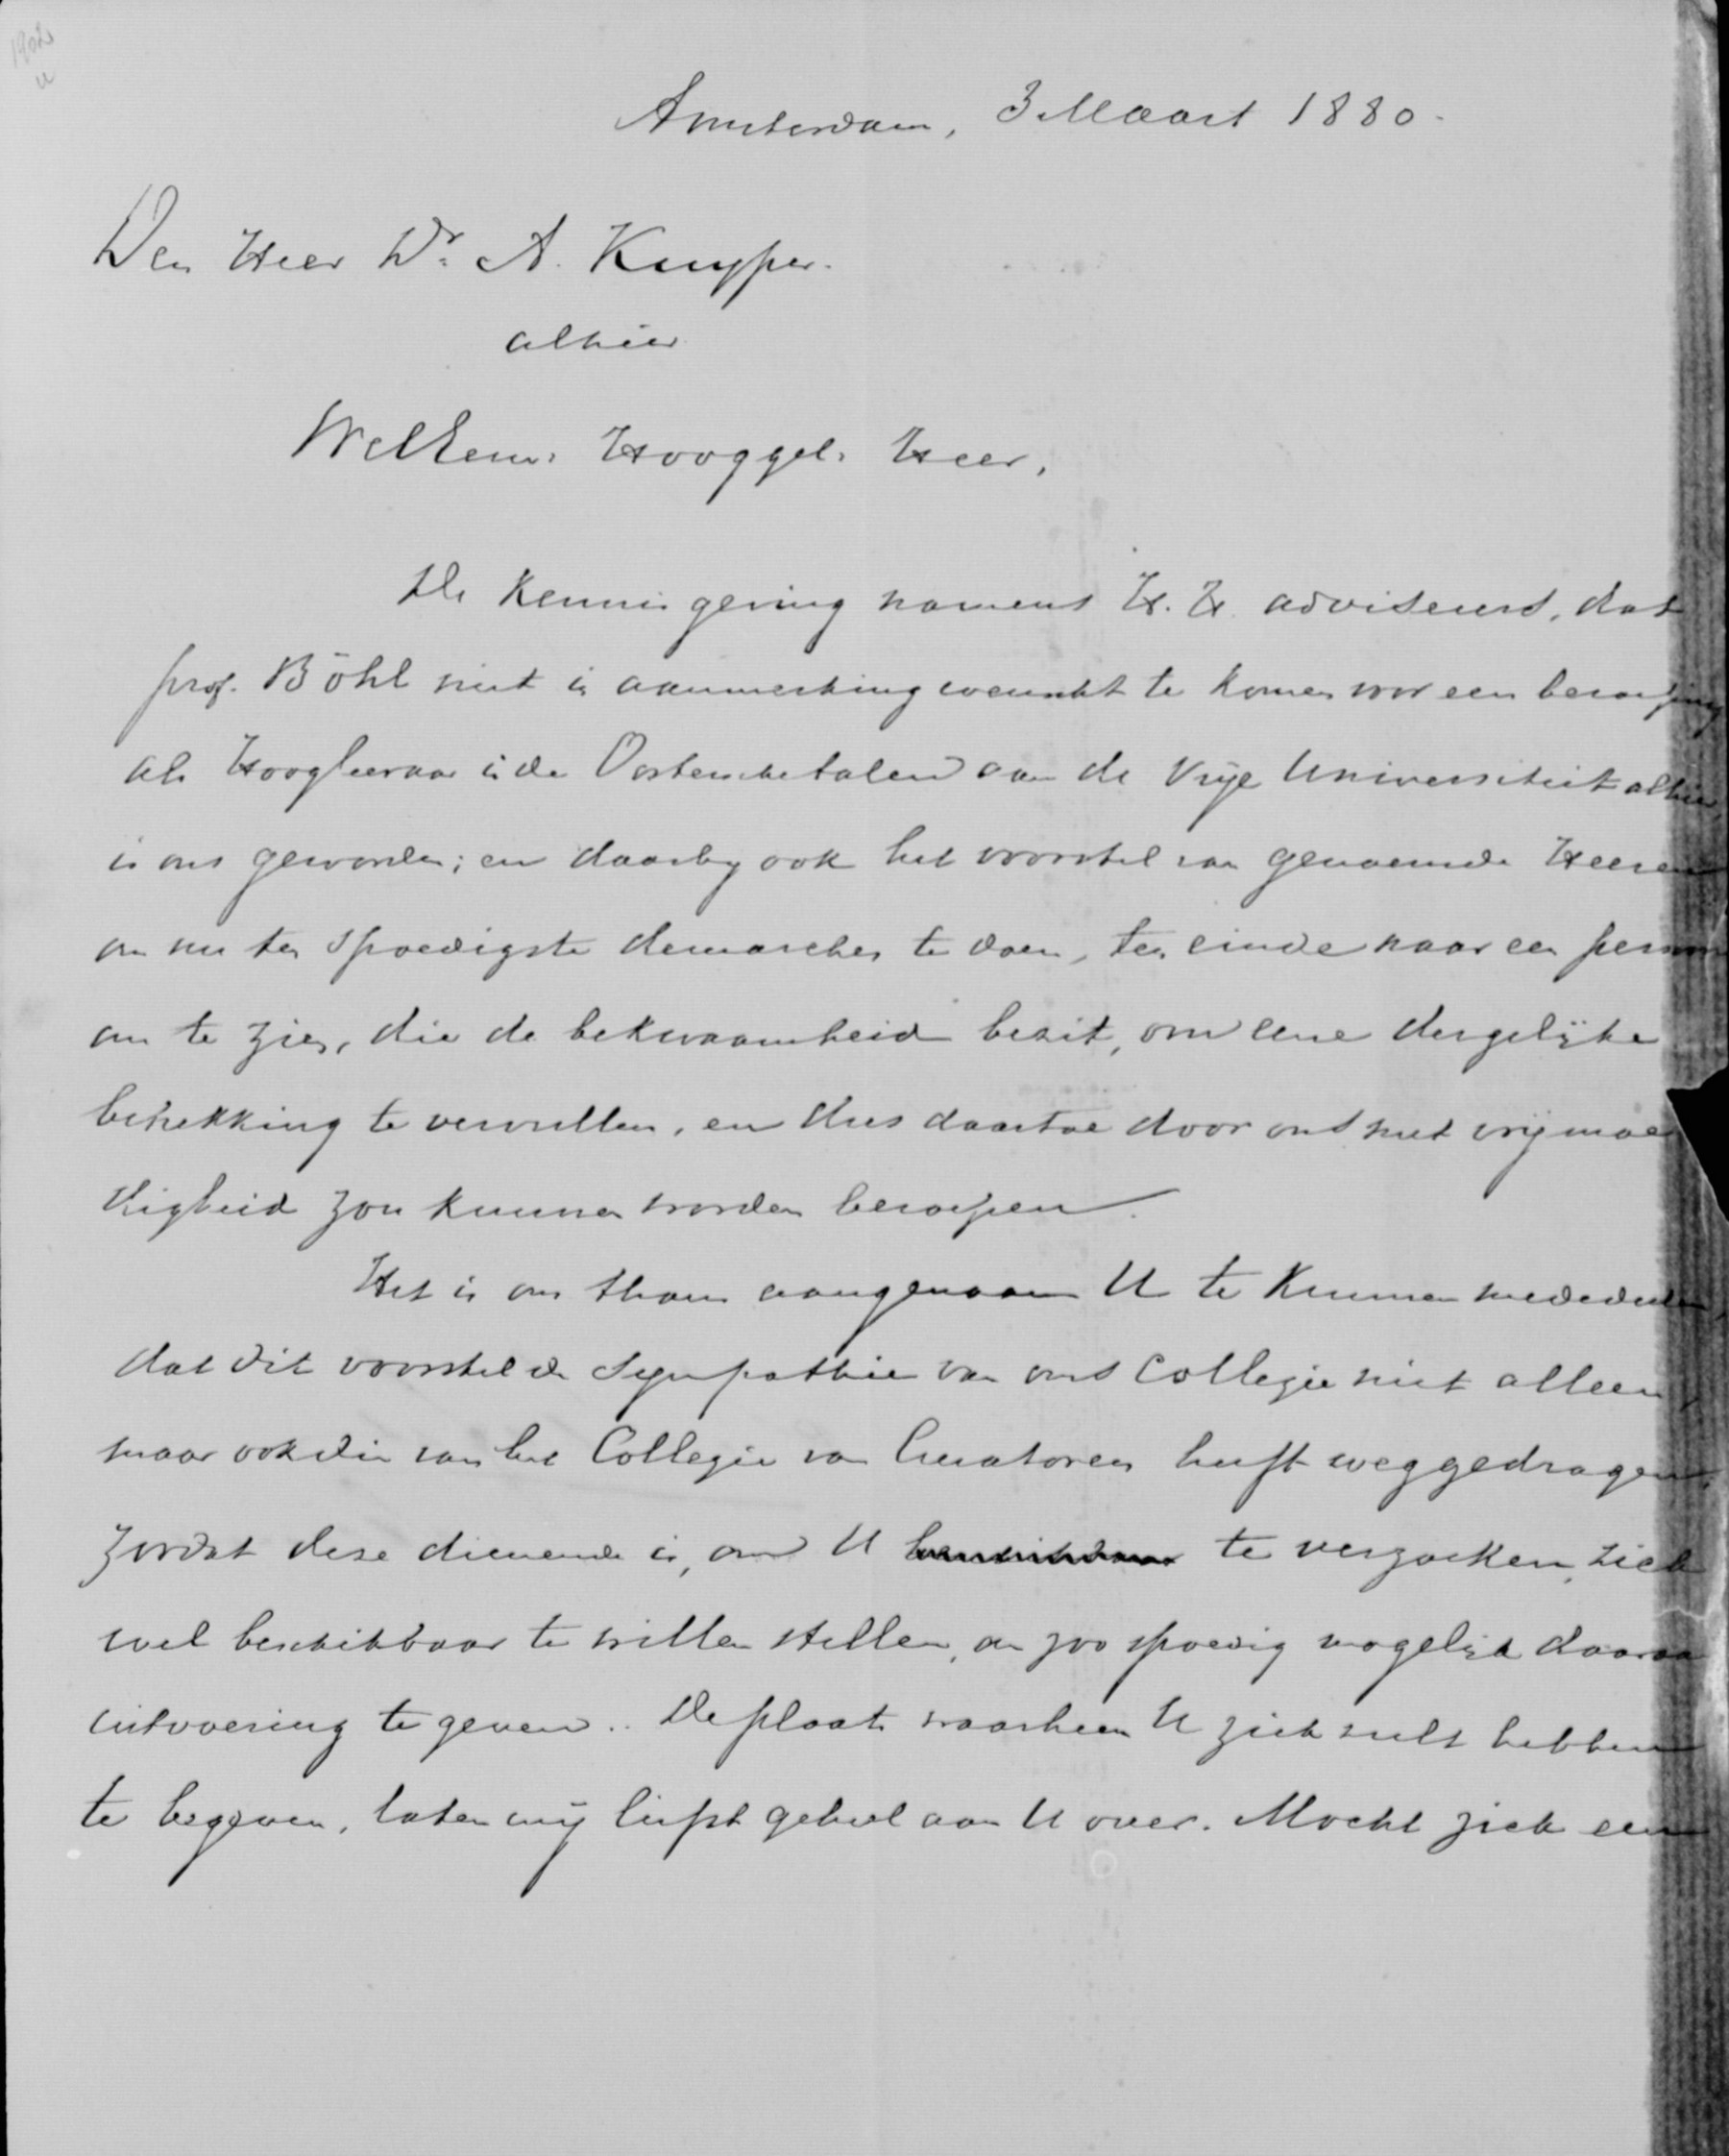 Amsterdam, 3 Maart 1880.
Den Heer Dr. A. Kuyper.
alhier
WelEerw. Hooggel. Heer,
De kennisgeving namens H. H. adviseurs, dat
prof. Böhl niet in aanmerking wenscht te komen voor een beroeping
als Hoogleeraar in de Oostersche talen aan de Vrije Universiteit alhier
is ons geworden; en daarby ook het voorstel van genoemde Heeren
om nu ten spoedigste demarches te doen, ten einde naar een persoon
om te zien, die de bekwaamheid bezit, om eene dergelijke
betrekking te vervullen, en dus daartoe door ons met vrijmoe
digheid zou kunnen worden beroepen.
Het is ons thans aangenaam U te kunnen mededeelen,
dat dit voorstel de sympathie van ons Collegie niet alleen,
maar ook die van het Collegie van Curatoren heeft weggedragen,
zoodat deze dienende is, om U te verzoeken, zich
wel beschikbaar te willen stellen, om zoo spoedig mogelijk daaraan
uitvoering te geven.. De plaats waarheen U zich zult hebben
te begeven, laten wij liefst geheel aan U over. Mocht zich een